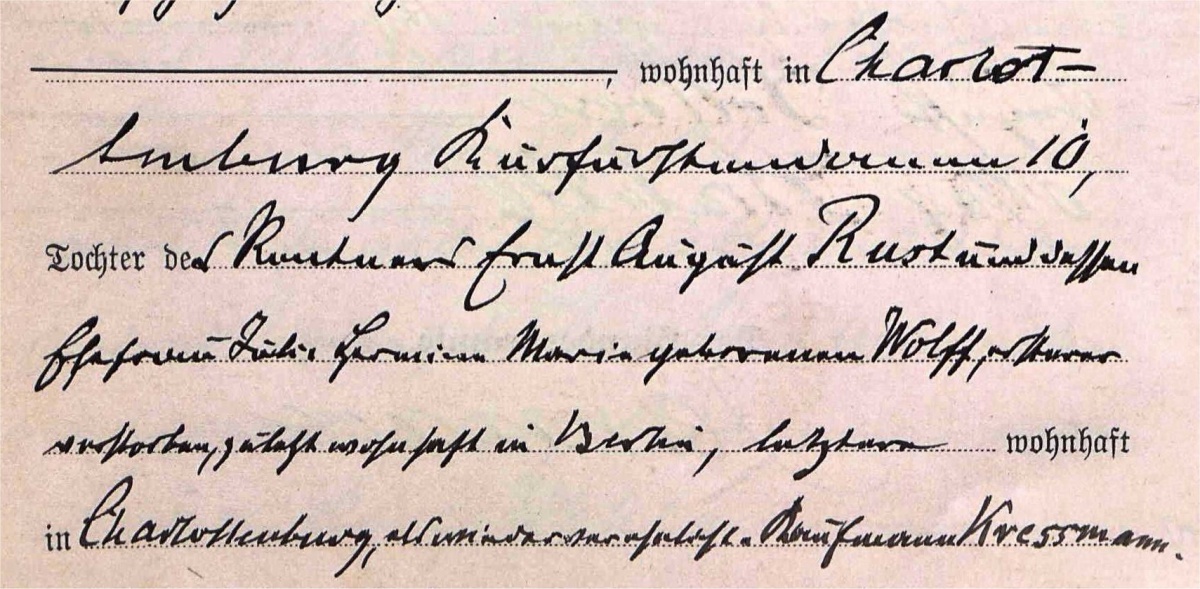 , wohnhaft in Charlot-
tenburg Kurfürstendamm 10,
Tochter des Rentners Ernst August Rust und dessen
Ehefrau Julie Hermine Marie geborenen Wolff, ersterer
verstorben, zuletzt wohnhaft in Berlin, letztere wohnhaft
in Charlottenburg, als wiederverehelichte Kaufmann Kressmann.